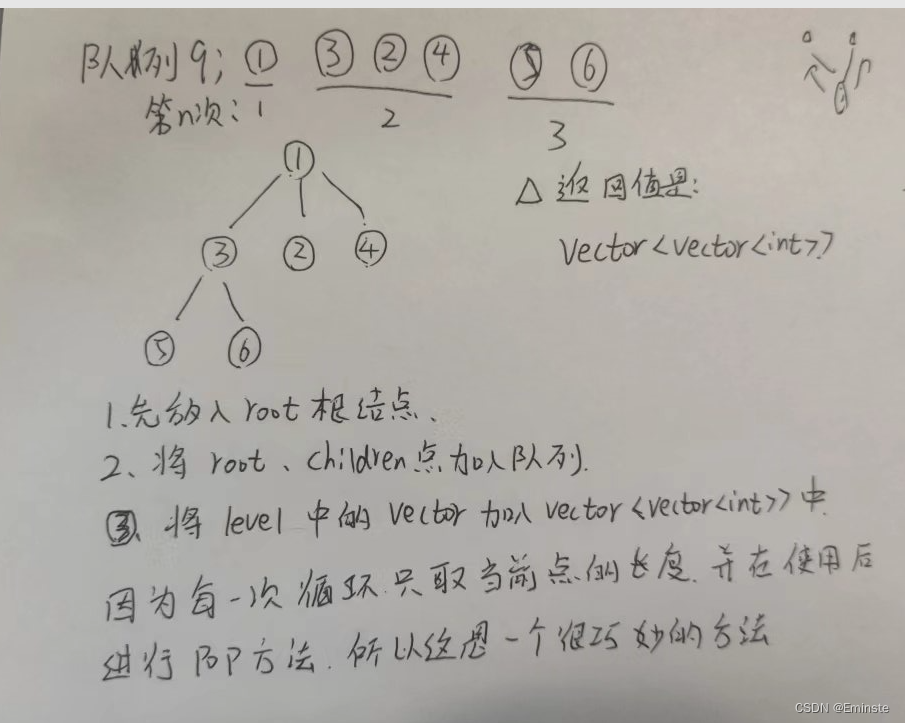 队列q; ① ③ ② ④ ⑤ ⑥
第n次: 1 2 3
①
△ 返回值是:
③ ② ④
vector<vector<int>>
⑤ ⑥
1.先放入root根结点、
2、将 root、children点加入队列.
3、将 level 中的 vector 加入 vector<vector<int>>中.
因为每一次循环.只取当前点的长度.并在使用后
进行POP方法.所以这是一个很巧妙的方法
CSDN @Eminste